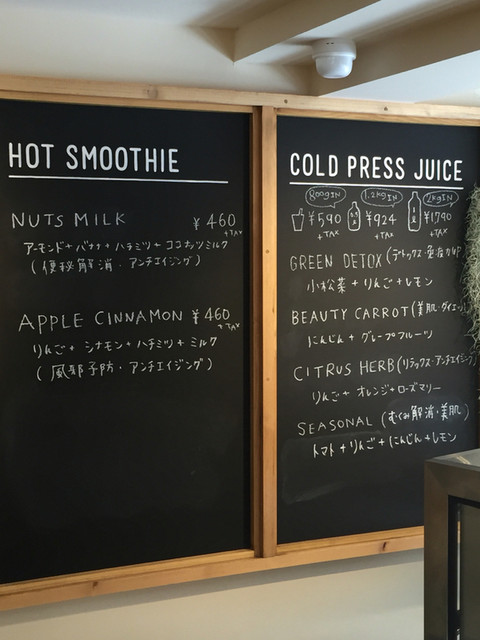 HOT SMOOTHIE
NUTS MILK ¥460 +TAX
アーモンド+バナナ+ハチミツ+ココナッツミルク
(便秘解消・アンチエイジング)
APPLE CINNAMON ¥460 +TAX
りんご+シナモン+ハチミツ+ミルク
(風邪予防・アンチエイジング)
COLD PRESS JUICE
800gIN 1.2kgIN 2kgIN
¥590 +TAX ¥924 +TAX ¥1790 +TAX
GREEN DETOX (デトックス・免疫力UP)
小松菜+りんご+レモン
BEAUTY CARROT (美肌・ダイエッ
にんじん+グレープフルーツ
CITRUS HERB (リラックス・アンチエイジング)
りんご+オレンジ+ローズマリー
SEASONAL (むくみ解消・美肌)
トマト+りんご+にんじん+レモン